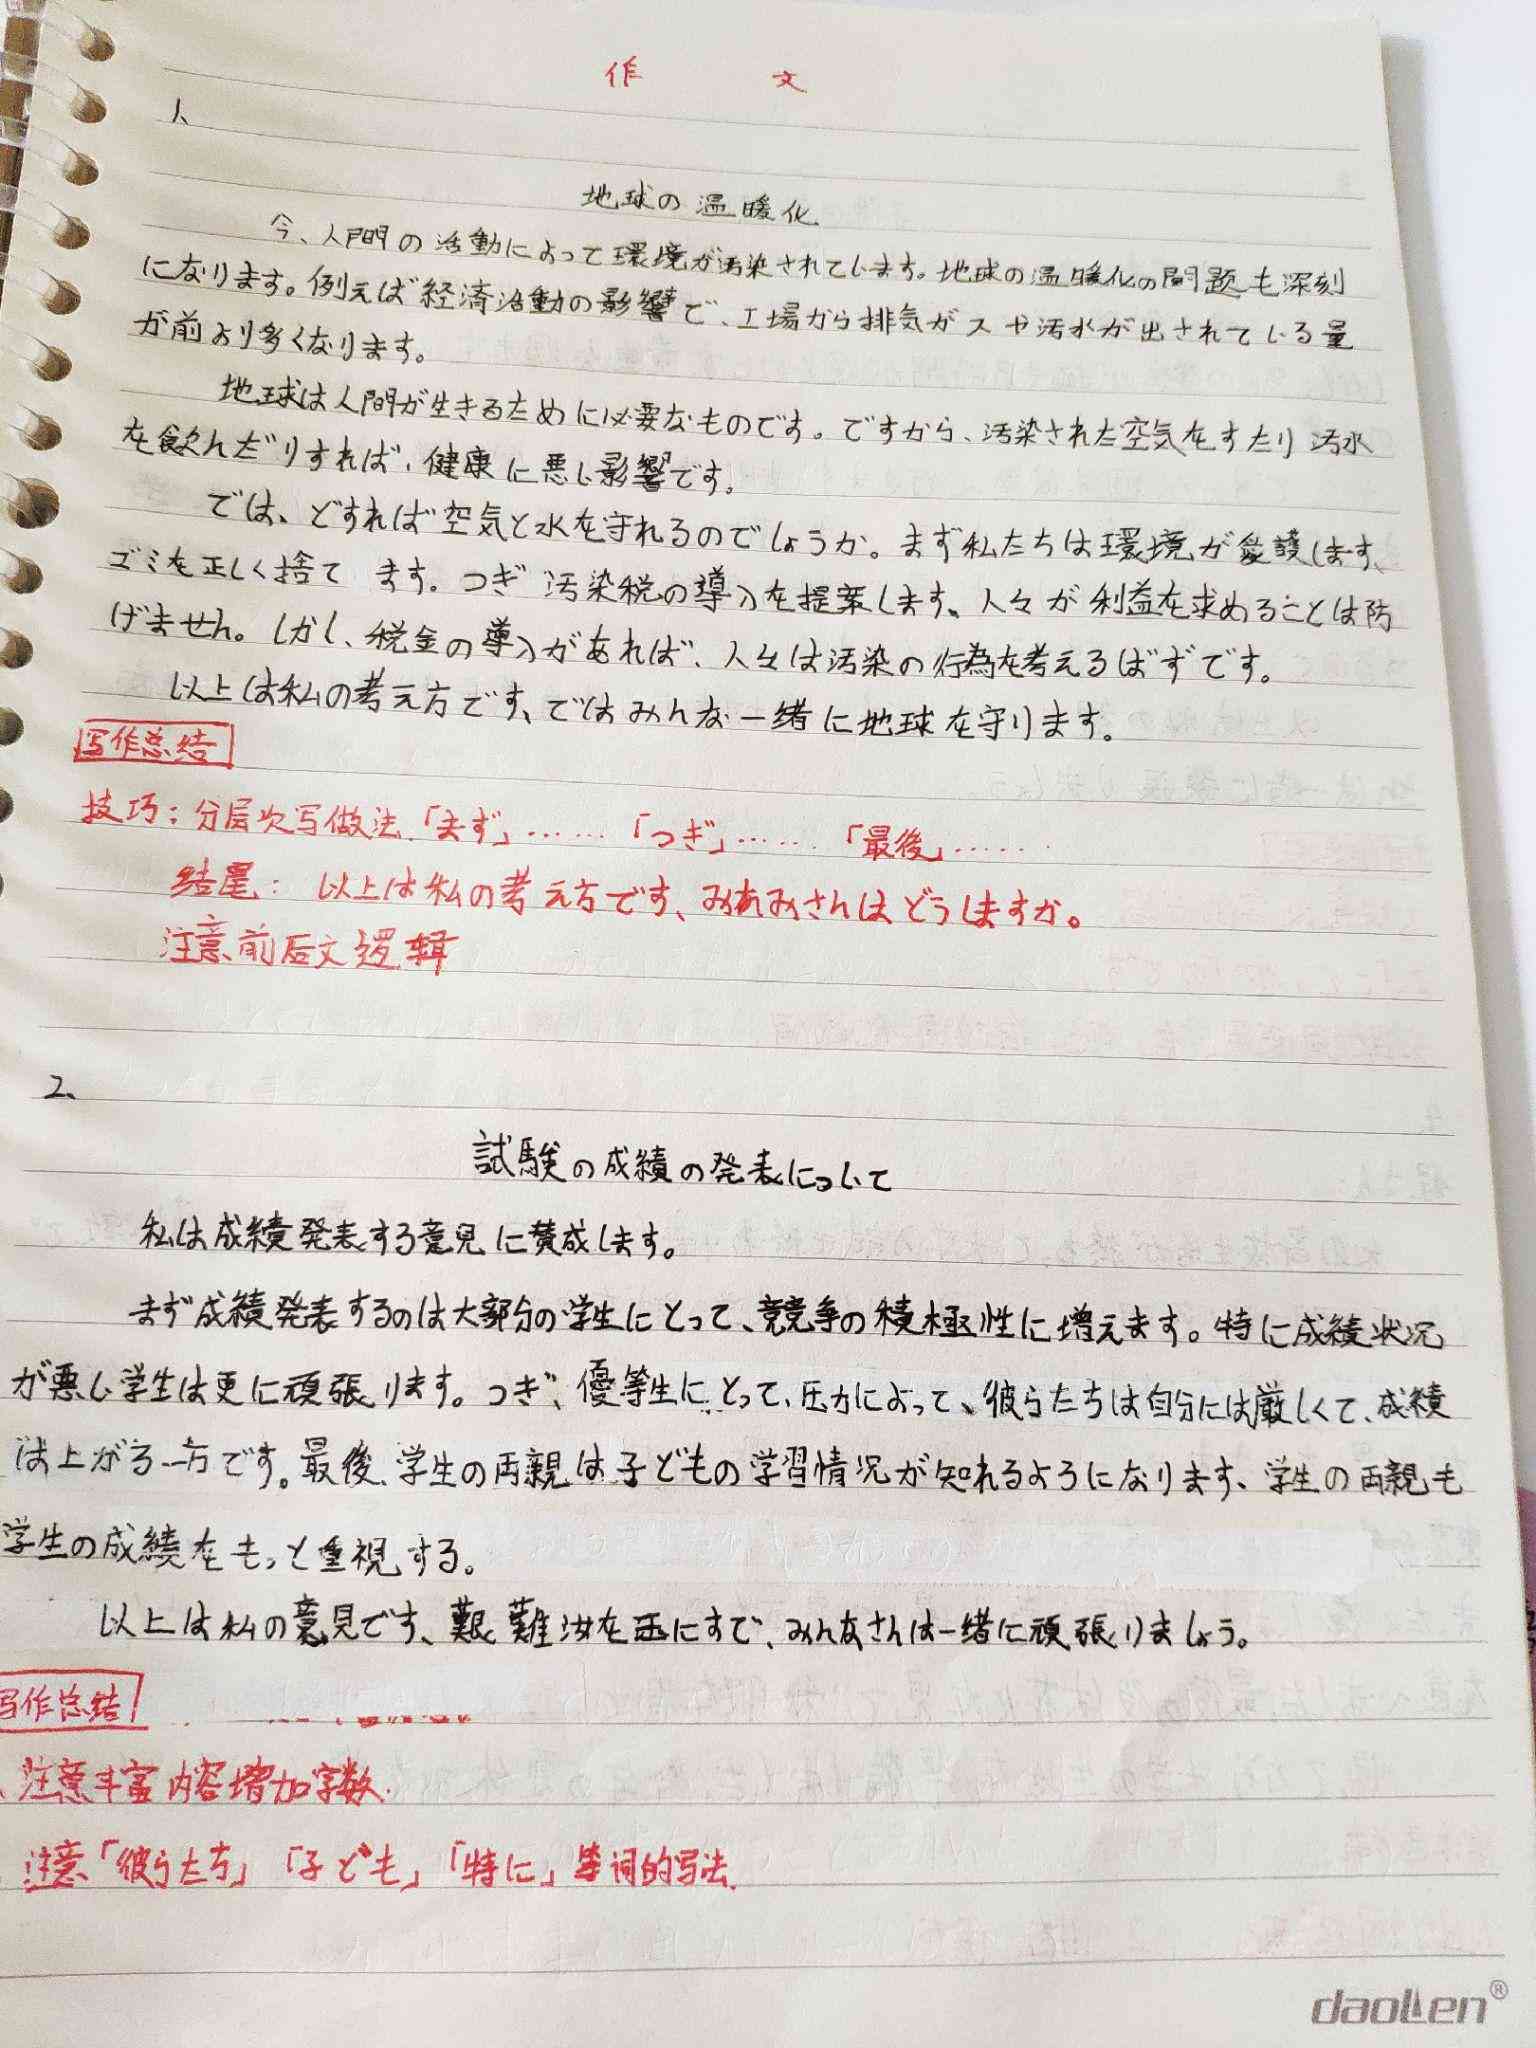 作 文
1、
地球の温暖化
今、人間の活動によって環境が汚染されています。地球の温暖化の問題も深刻
になります。例えば経済活動の影響で、工場から排気がスや汚水が出されている量
が前より多くなります。
地球は人間が生きるために必要なものです。ですから、汚染された空気をすたり汚水
を飲んだりすれば、健康に悪い影響です。
では、どすれば空気と水を守れるのでしょうか。まず私たちは環境が愛護します、
ゴミを正しく捨て ます。つぎ 汚染税の導入を提案します、人々が利益を求めることは防
げません。しかし、税金の導入があれば、人々は汚染の行為を考えるばずです。
以上は私の考え方です、ではみんな一緒に地球を守ります。
写作总结
技巧：分层次写做法「まず」……「つぎ」……「最後」……
结尾：以上は私の考え方です、みあみさんはどうしますか。
注意前后文逻辑
2、
試験の成績の発表について
私は成績発表する意見に賛成します。
まず成績発表するのは大部分の学生にとって、競争の積極性に増えます。特に成績状況
が悪い学生は更に頑張ります。つぎ、優等生にとって、圧力によって、彼らたちは自分には厳しくて、成績
は上がる一方です。最後、学生の両親は子どもの学習情況が知れるようになります、学生の両親も
学生の成績をもっと重視する。
以上は私の意見です、艱難汝を玉にすで、みんなさんは一緒に頑張りましょう。
写作总结
注意丰富内容增加字数.
注意「彼らたち」「子ども」「特に」等词的写法.
daolen®